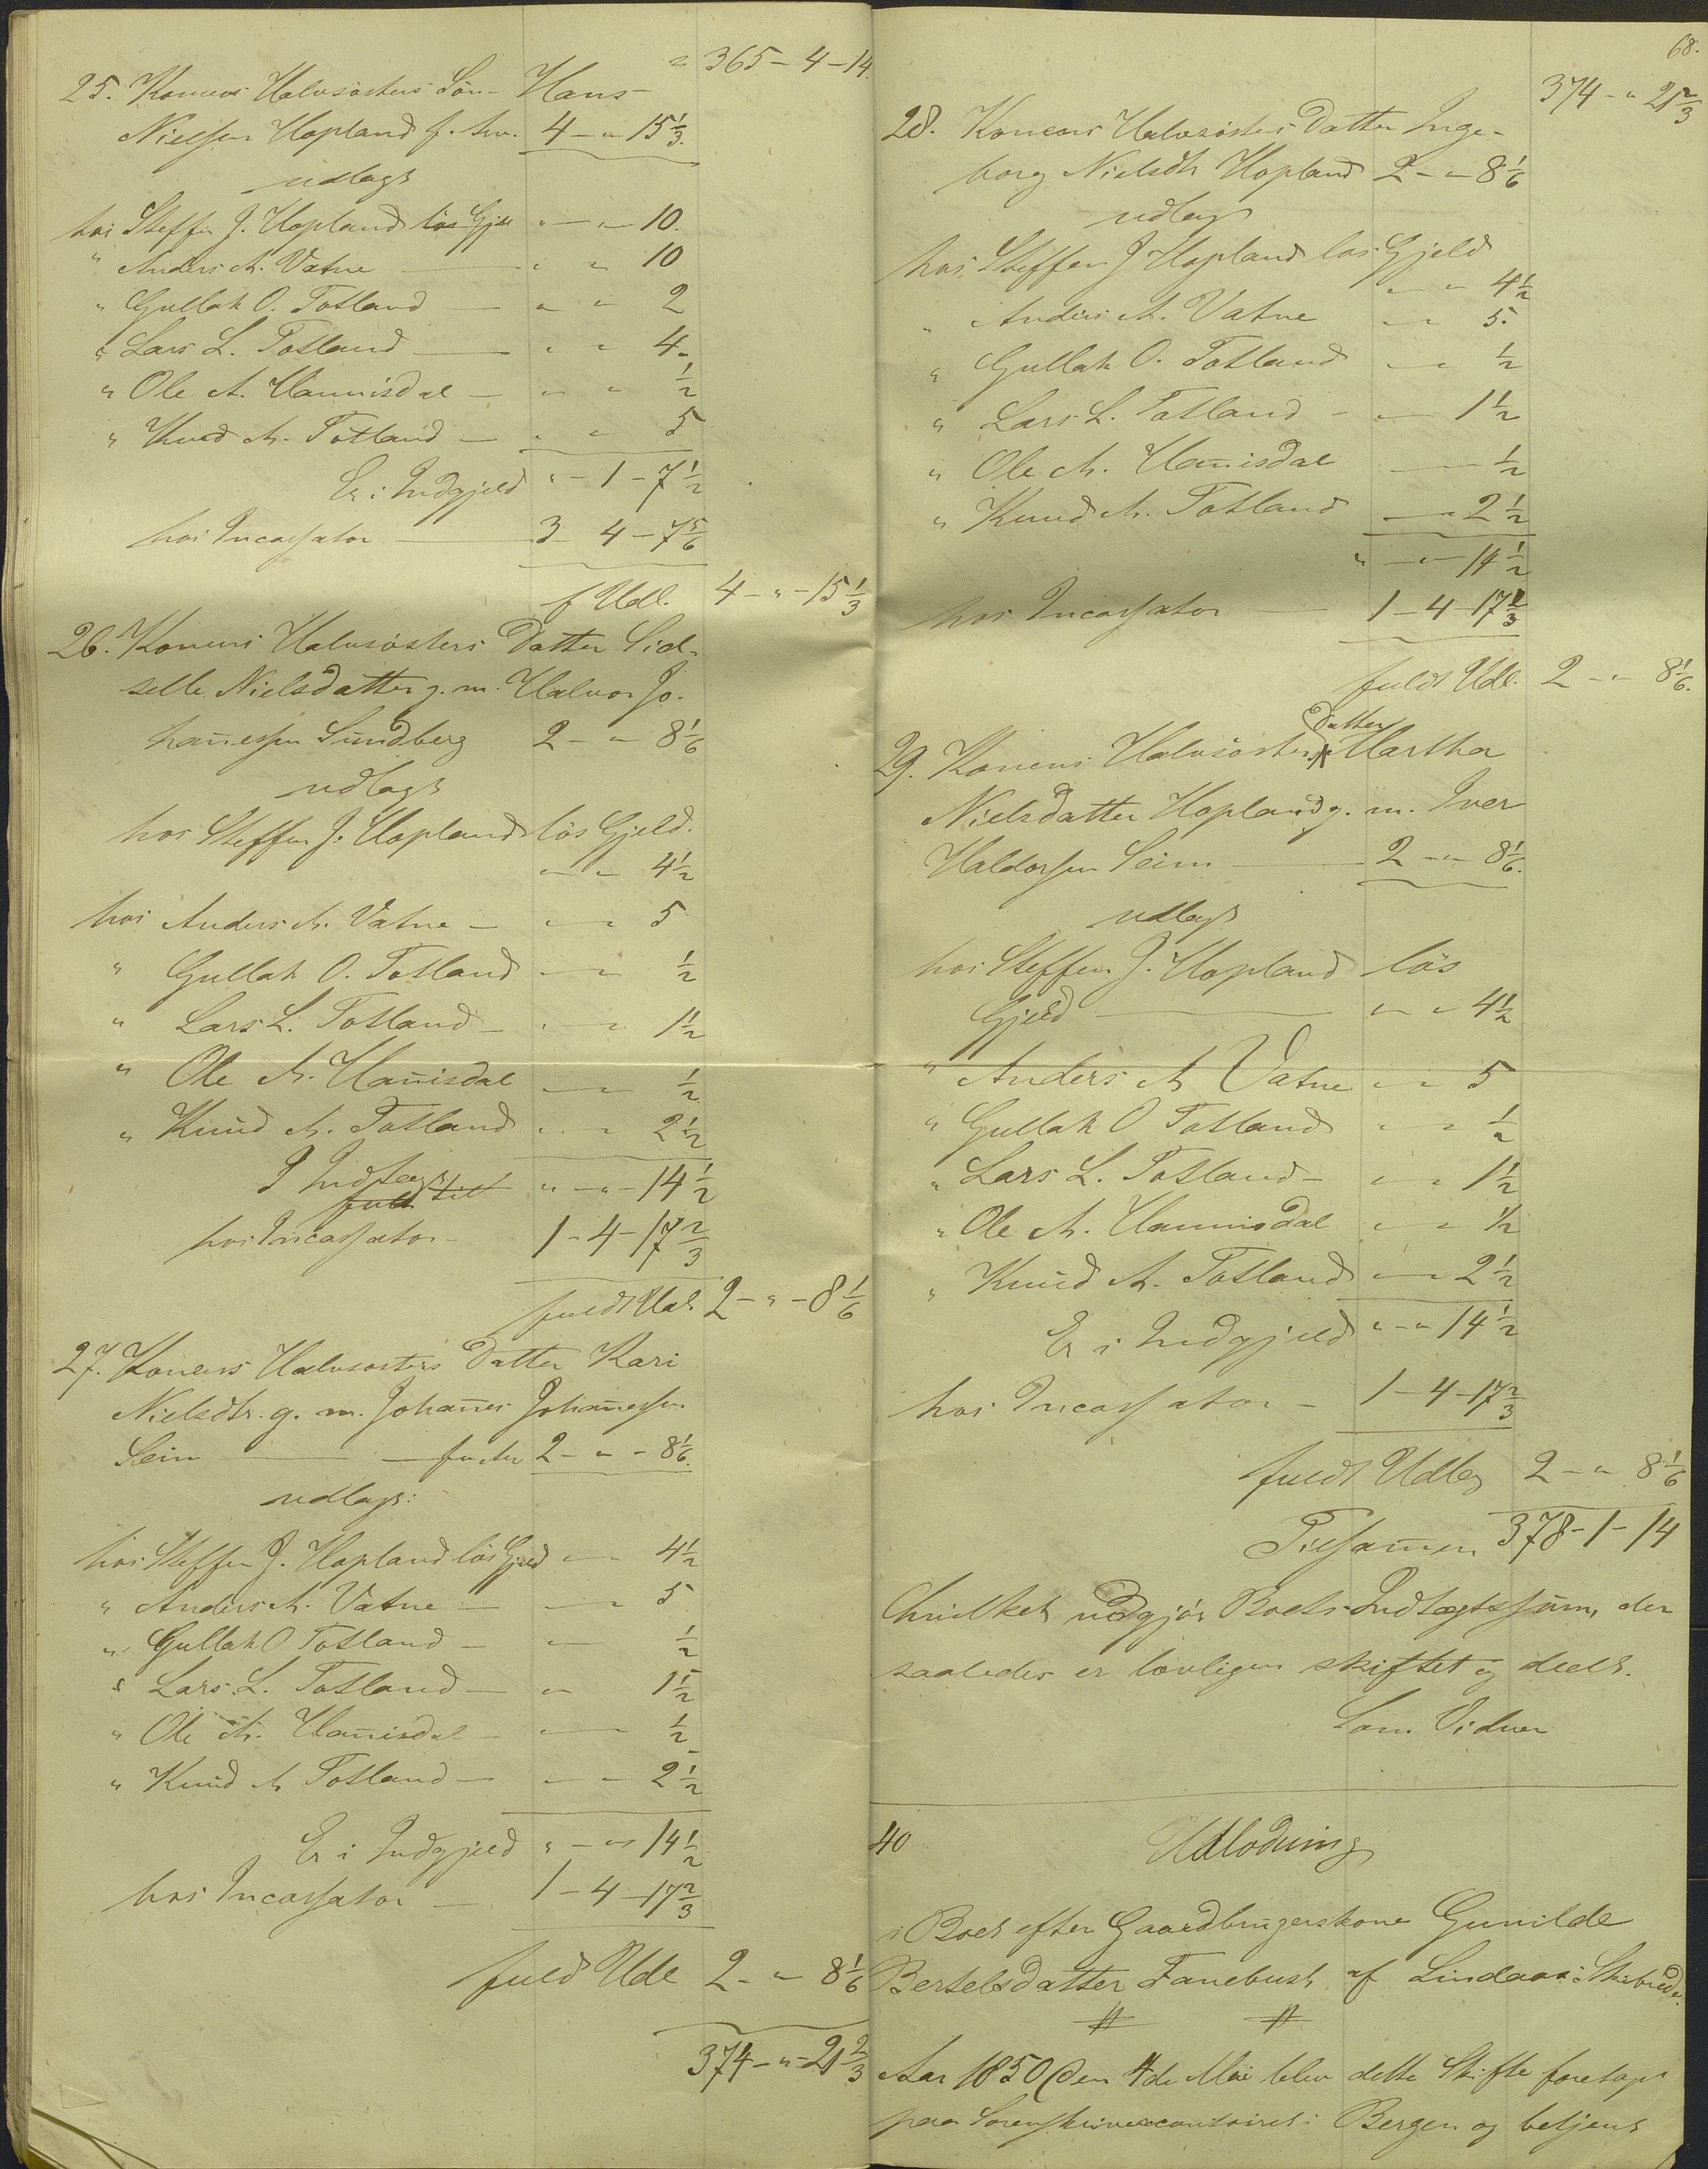 " 365 - 4 - 14.
25. Konens Halvsösters Sön - Hans
Nielsen Hopland f. Arv. 4 - " 15 1/3.
udlagt
hos Steffen J. Hopland lös Gjeld " - " - 10.
" Anders A. Vatne " " 10
" Gullak O. Totland " " 2
" Lars L. Totland " " 4 -
" Ole A. Hannisdal - " " 1/2
" Knud A. Totland - " " 5
Er i Indgjeld " - 1 - 7 1/2
hos Incassator 3 4 - 7 5/6
f Udl. 4 - " - 15 1/3
26. Konens Halvsösters Datter Sid-
selle Nielsdatter g. m. Halvor Jo-
han̅essen Sundberg 2 - " 8 1/6
udlagt
hos Steffen J. Hopland lös Gjeld.
" - " 4 1/2
hos Anders A. Vatne - " - " 5
" Gullak O. Totland " - " 1/2
" Lars L. Totland - " - " 1 1/2
" Ole A. Han̅isdal " - " 1/2
" Knud A. Totland " - " 2 1/2
I Indtægt " - " - 14 1/2
hos Incassator - 1 - 4 - 17 2/3
fuldt Udl 2 - " - 8 1/6
27. Konens Halvsösters Datter Kari
Nielsdtr. g. m. Johan̅es Johan̅essen
Seim for Arv 2 - " - 8 1/6.
udlagt:
hos Steffen J. Hopland lös Gjeld " - 4 1/2
" Anders A. Vatne - " - 5
" Gullak O Totland - " - 1/2
" Lars L. Totland - " 1 1/2
" Ole A. Han̅isdal - " - 1/2
" Knud A Totland - " - " 2 1/2
Er i Indgjeld " - " 14 1/2
hos Incassator - 1 - 4 - 17 2/3
fuld Udl 2 - " 8 1/6
374 - " - 21 2/3
68.
374 - " 21 2/3
28. Konens Halvsösters Datter Inge-
borg Nielsdtr Hopland 2 - " 8 1/6
udlagt
hos Steffen J Hopland lös Gjeld
" - " 4 1/2
" Anders A. Vatne " - " 5.
" Gullak O. Totland " - " 1/2
" Lars L. Totland - " - 1 1/2
" Ole A. Han̅isdal - 1/2
" Knud A. Totland - 2 1/2
" - " - 14 1/2
hos Incassator 1 - 4 - 17 2/3
fuldt Udl. 2 - " 8 1/6.
Datter
29. Konens Halvsösters Martha
Nielsdatter Hopland g. m. Iver
Haldorsen Seim 2 - " 8 1/6.
udlagt
hos Steffen J. Hopland lös
Gjeld " - " 4 1/2
" Anders A Vatne " - " 5
" Gullak O Totland " " 1/2
" Lars L. Totland - " - " 1 1/2
" Ole A. Hannisdal " - " 1/2
" Knud A. Totland " - " 2 1/2
Er i Indgjeld " - " 14 1/2
hos Incassator - 1 - 4 - 17 2/3
fuldt Udlæg 2 - " 8 1/6
Tilsam̅en 378 - 1 - 14
hvilket udgjör Boets Indtægtssum, der
saaledes er lovligen skiftet og deelt.
Som Vidner
40 Udlodning
i Boet efter Gaardbrugerkone Gunilde
Bertelsdatter Fanebust af Lindaas Skibrede.
Aar 1850 den 4de Mai blev dette Skifte foretaget
paa Sorenskrivercontoiret i Bergen og betjent